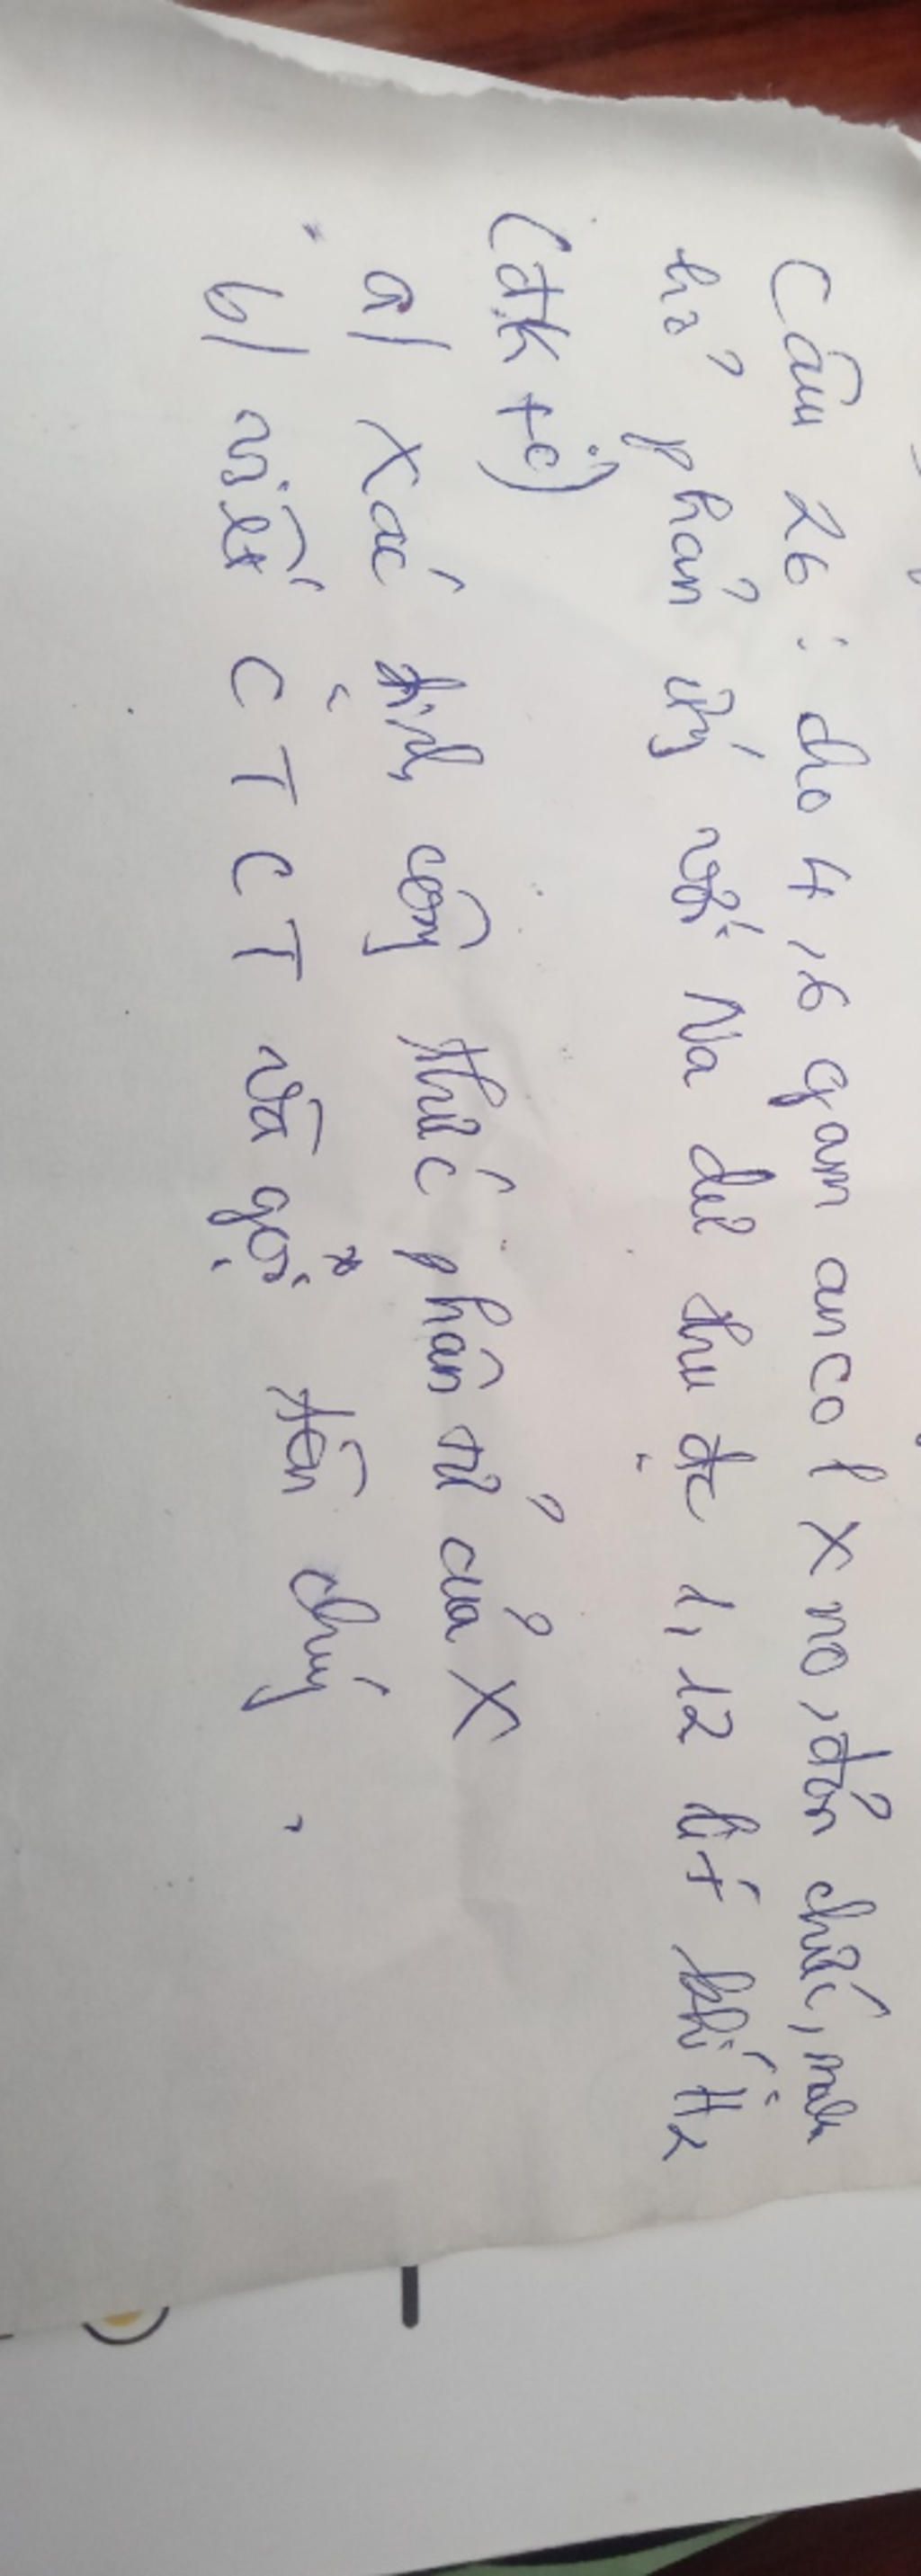 Câu 26 : cho 4,6 gam ancol X no, đơn chức, mạch
hở phản ứng với Na dư thu đc 1,12 lít khí H2
(đk tc)
a/ Xác định công thức phân tử của X
b/ viết CTCT và gọi tên chúng.